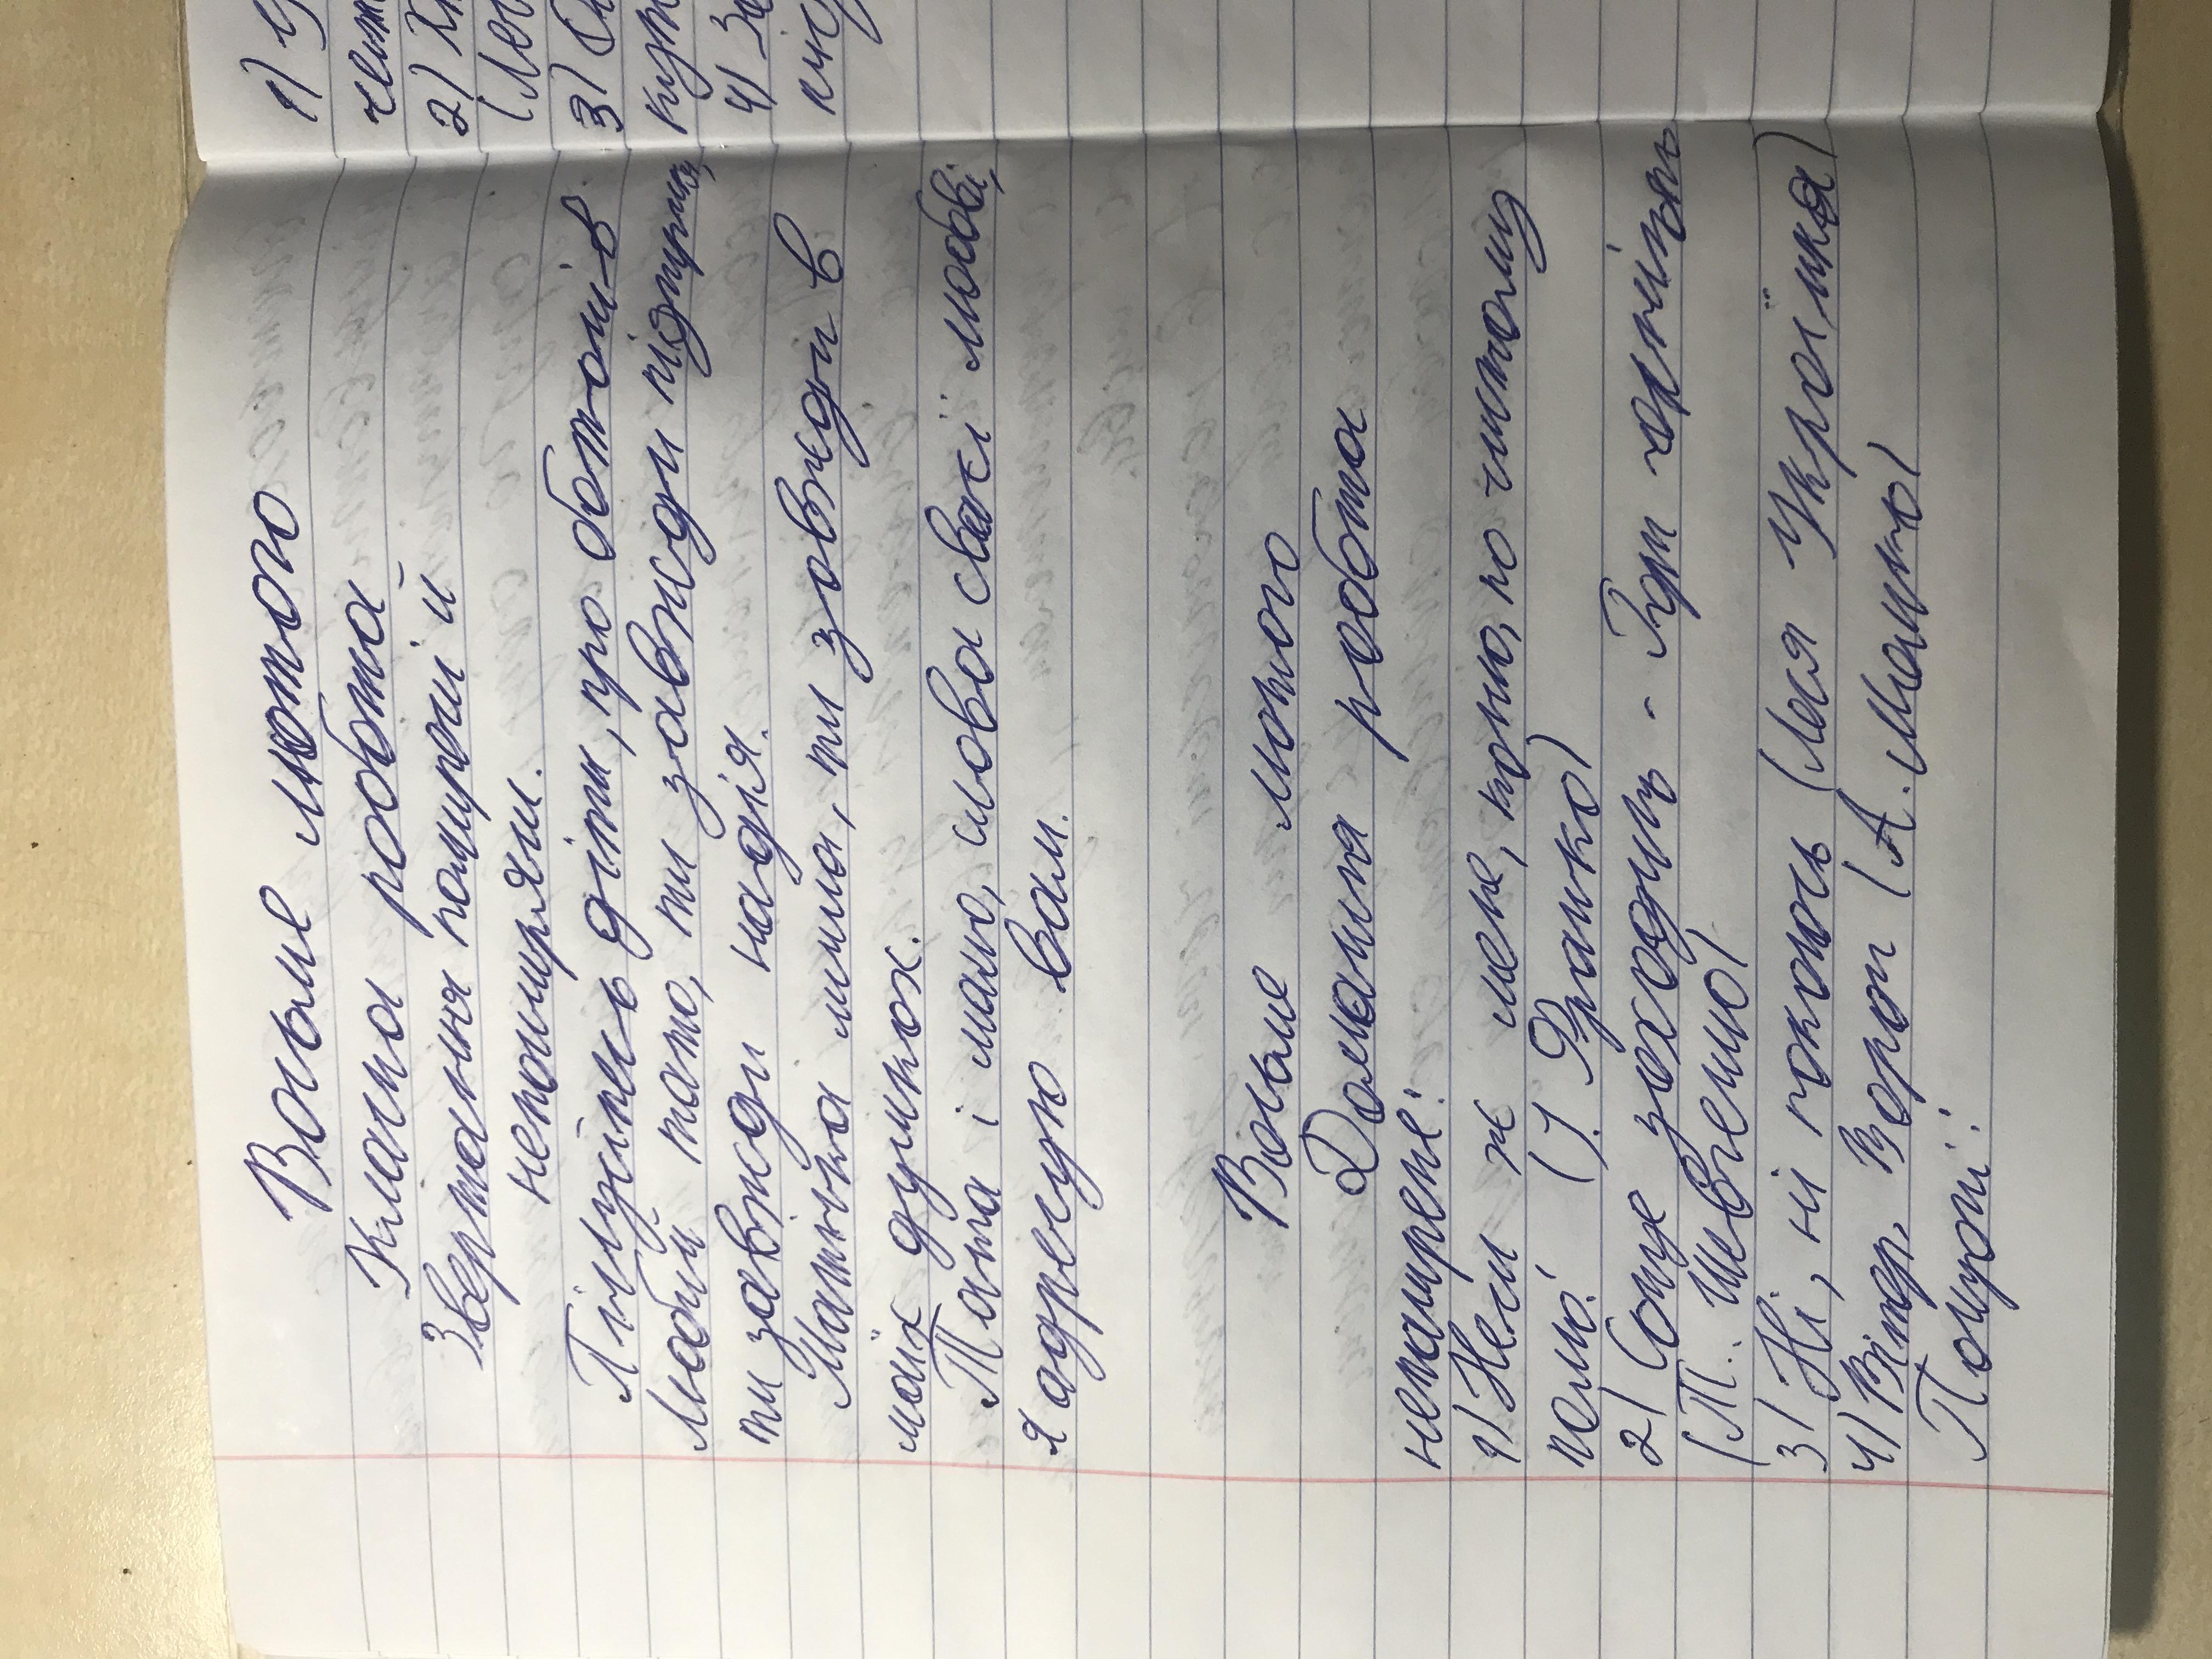 Восьме лютого
Класна робота
Звертання поширені й
непоширені.
Піклуйтесь діти, про батьків
Любий тато, ти завжди підтримка,
ти завжди надія.
Матінко мила, ти завжди в
моїх думках.
Тато і мамо, слова своєї любові,
я адресую вам.
Восьме лютого
Домашня робота
непоширене:
1) Неси ж мене, коню, по чистому
полю! (І. Франко)
2) Сонце заходить - Гори чорніють
(Т. Шевченко)
3) Ні, ні покоюсь (Леся Українка)
4) Вітер, Ворог (А. Малишко)
Поширені:
1) У
2) Хт
(Лев
3)
4) За